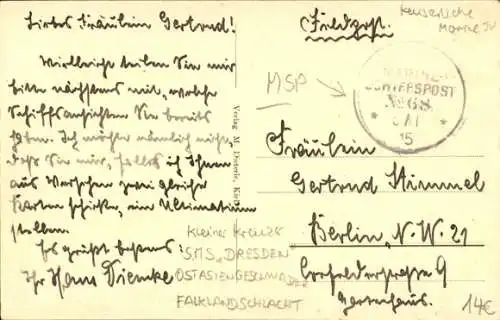 Liebes Fräulein Gertrud!
Vielleicht teilen Sie mir
bitte nächstens mit, welche
Schiffsansichten Sie bereits
haben. Ich möchte nämlich nicht,
daß Sie mir, falls ich Ihnen
aus Versehen zwei gleiche
Karten schicke, ein Ultimatum
stellen.
Es grüßt bestens
Ihr Hans Diemke
Verlag M. Kiel
Feldpost.
Kaiserliche
Marine
MSP
MARINE-
SCHIFFSPOST
No 68
15
Fräulein
Gertrud Himmel
Berlin, N.W. 21
9
Gartenhaus.
Kleiner Kreuzer
"S.M.S. DRESDEN
OSTASIENGESCHWADER
FALKLANDSCHLACHT
14€